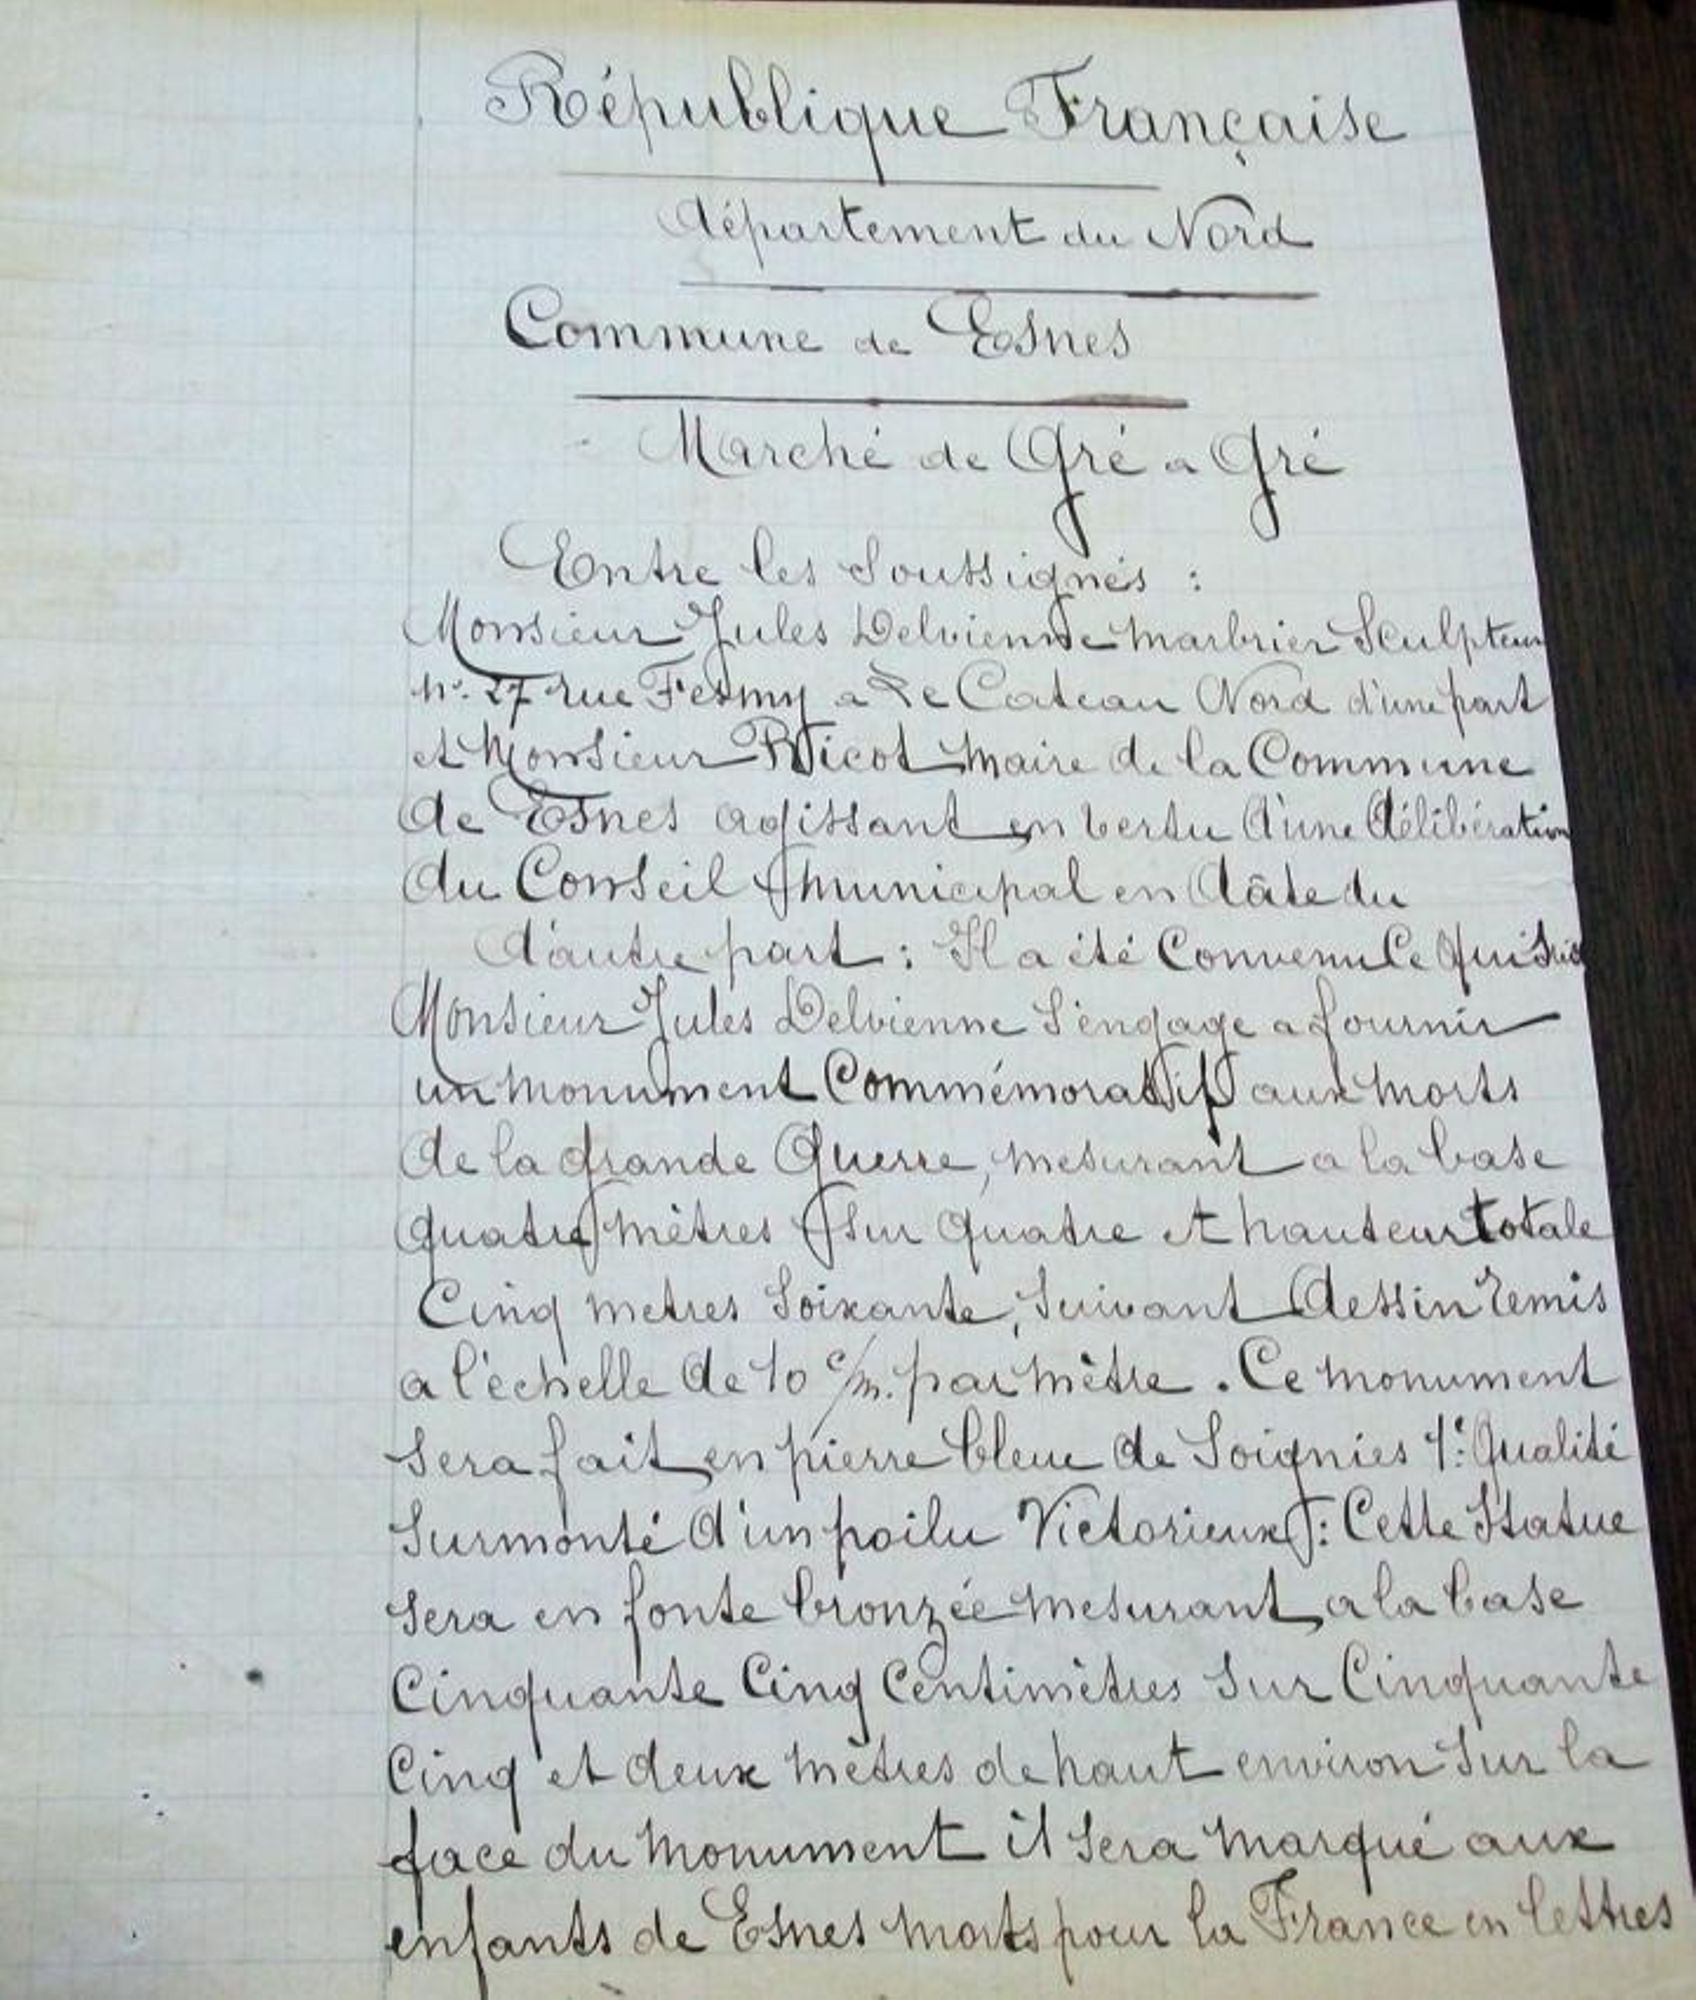 République Française
département du Nord
Commune de Esnes
Marché de Gré a Gré
Entre les Soussignés :
Monsieur Jules Delvienne marbrier Sculpteur
n° 27 rue Fesmy a Le Cateau Nord d'une part
et Monsieur Ricot maire de la Commune
de Esnes agissant en vertu d'une délibération
du Conseil municipal en dâte du
d'autre part : Il a été Convenu Ce qui Suit
Monsieur Jules Delvienne S'engage a fournir
un monument Commémoratif aux morts
de la grande Guerre, mesurant a la base
quatre mètres sur quatre et hauteur totale
Cinq metres Soixante, Suivant dessin remis
a l'échelle de 10 c/m. par mètre. Ce monument
Sera fait en pierre bleue de Soignies 1e: qualité
Surmonté d'un poilu Victorieux : Cette Statue
Sera en fonte bronzée mesurant a la base
Cinquante Cinq Centimètres Sur Cinquante
Cinq et deux mètres de haut environ Sur la
face du monument il Sera marqué aux
enfants de Esnes morts pour la France en lettres